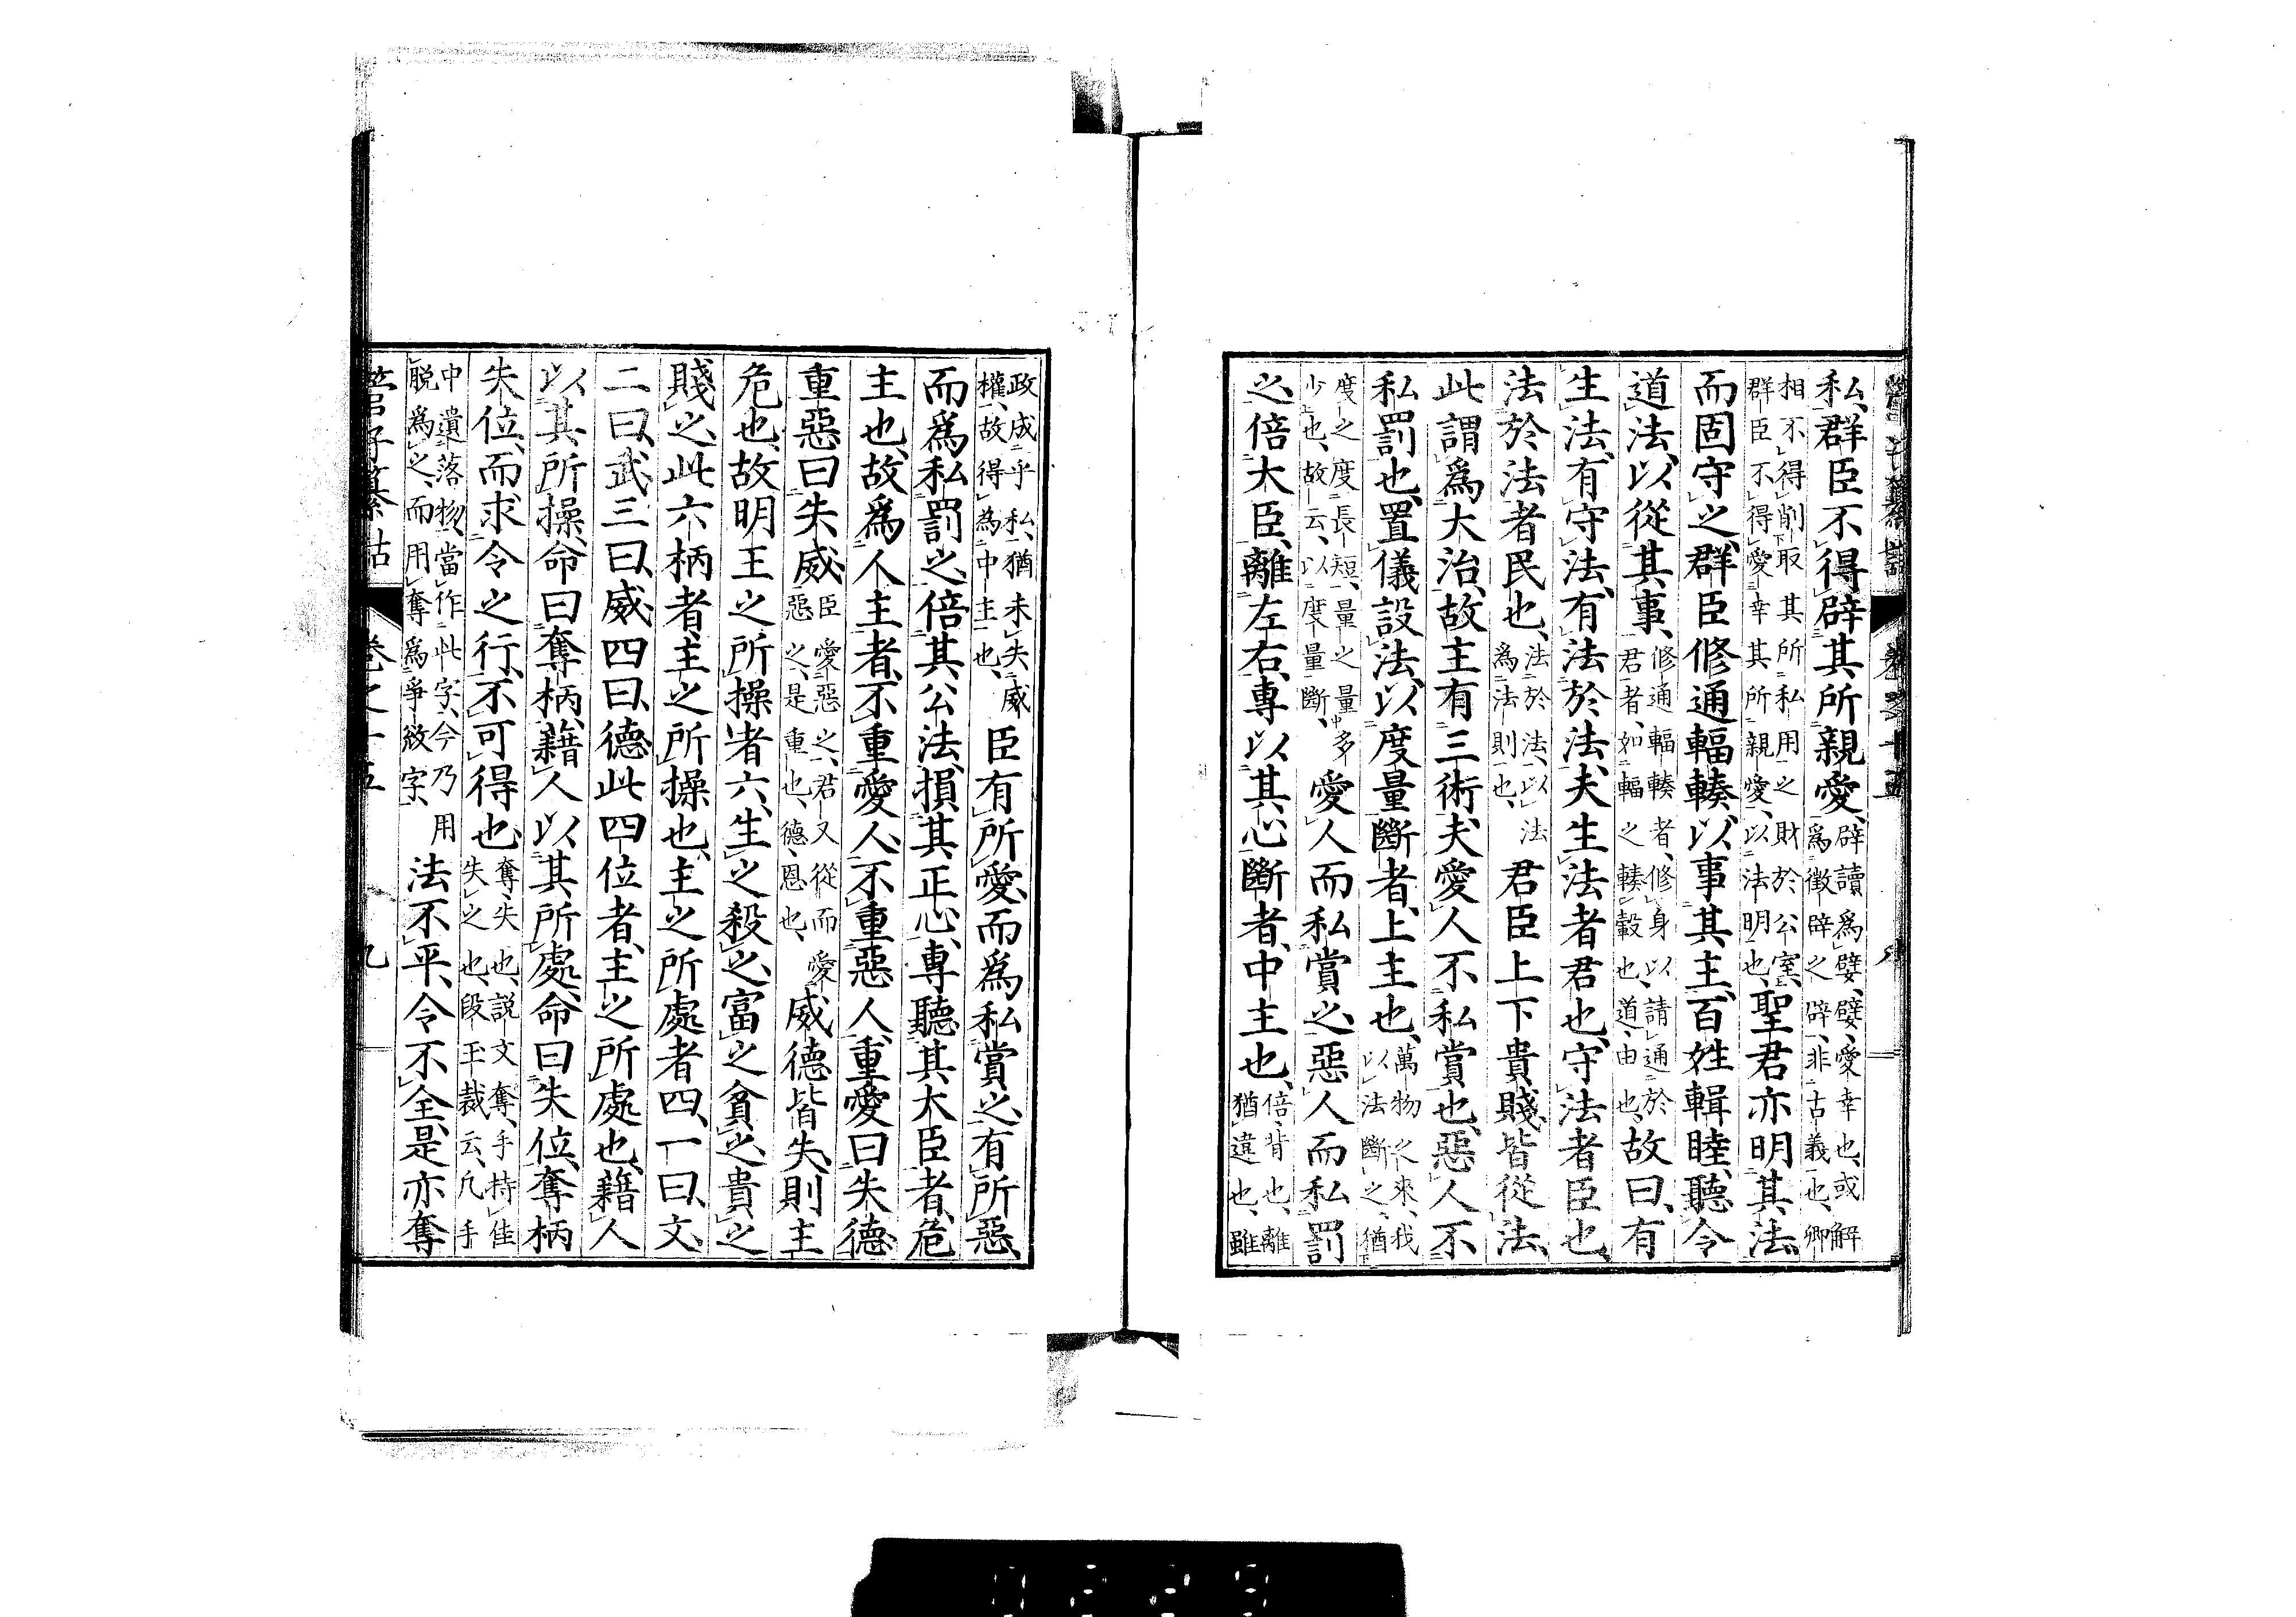 管子纂詁　卷之十五
私、群臣不得辟其所親愛、辟讀爲嬖、嬖、愛幸也、或解爲徵辟之辟、非古義也、卿
相不得削取其所私用之財於公室、群臣不得愛幸其所親愛、以法明也、聖君亦明其法
而固守之、群臣修通輻輳、以事其主、百姓輯睦、聽令
道法、以從其事、修通輻輳者、修身以請通於君者、如輻之輳轂也、道、由也、故曰、有
生法、有守法、有法於法、夫生法者君也、守法者臣也、
法於法者民也、法於法、以法爲法則也、君臣上下貴賤、皆從法、
此謂爲大治、故主有三術、夫愛人不私賞也、惡人不
私罰也、置儀設法、以度量斷者、上主也、萬物之來、我以法斷之、猶
度之度長短、量之量中多少也、故云、以度量斷、愛人而私賞之、惡人而私罰
之、倍大臣、離左右、專以其心斷者、中主也、倍、背也、離猶違也、雖
政成乎私、猶未失威權、故得爲中主也、臣有所愛、而爲私賞之、有所惡、
而爲私罰之、倍其公法、損其正心、專聽其大臣者、危
主也、故爲人主者、不重愛人、不重惡人、重愛曰失德、
重惡曰失威、臣愛惡之、君又從而愛惡之、是重也、德、恩也、威德皆失、則主
危也、故明王之所操者六、生之殺之、富之貧之、貴之
賤之、此六柄者、主之所操也、主之所處者四、一曰、文、
二曰、武、三曰、威、四曰、德、此四位者、主之所處也、藉人
以其所操、命曰奪柄、藉人以其所處、命曰失位、奪柄
失位、而求令之行、不可得也、奪、失也、說文奪、手持隹失之也、段王裁云、凡手
中遺落物、當作此字、今乃用脱爲之、而用奪爲爭敓字、法不平、令不全、是亦奪
管子纂詁　卷之十五　九